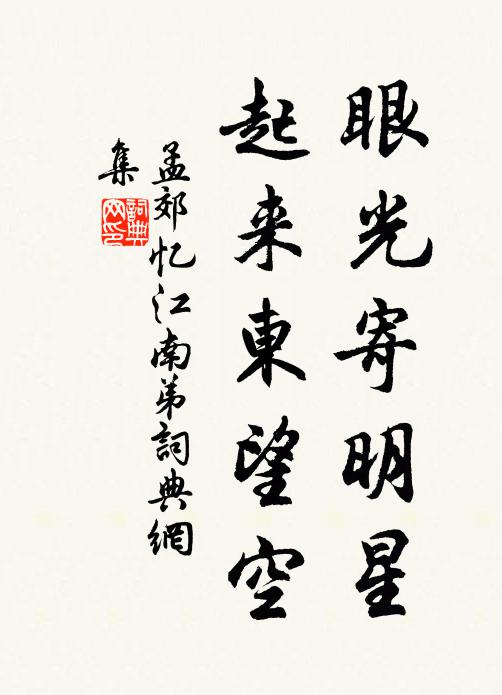 眼光寄明星
起来東望空
孟郊忆江南弟詞典網
集
詞典网印